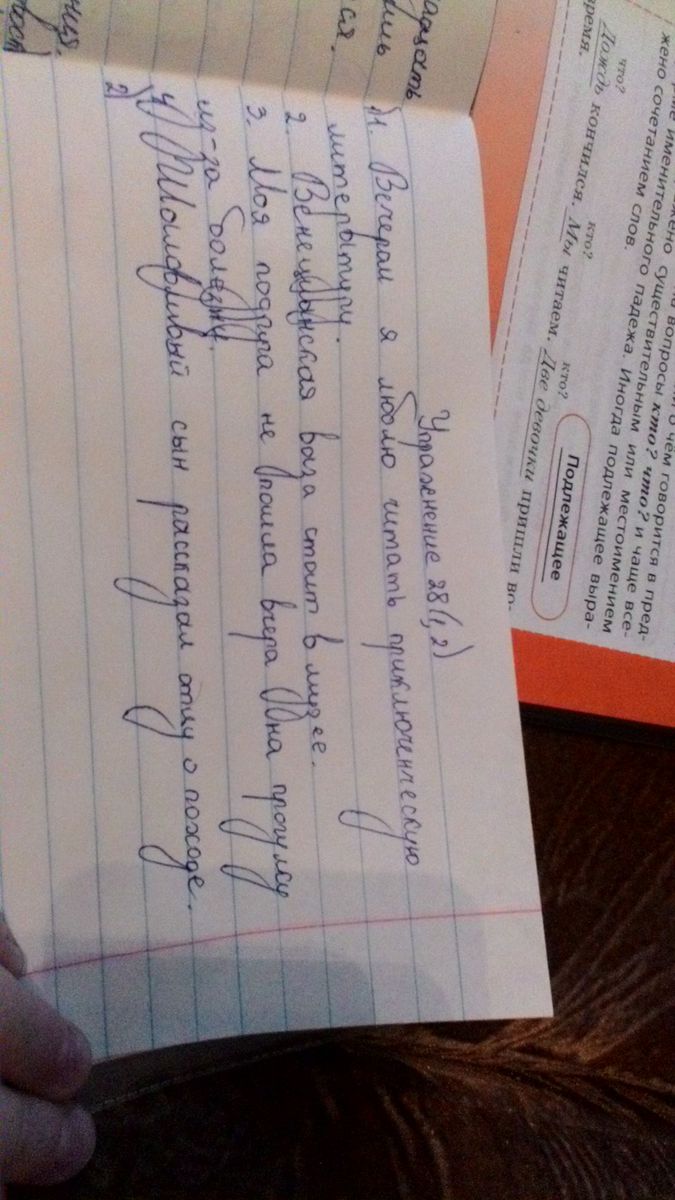 Упражнение 28(1,2)
1) 1. Вечерам я люблю читать приключенческую
литературу.
2. Венецианская ваза стоит в музее.
3. Моя подруга не пошла вчера на прогулку
из-за болезни.
4) Шаловливый сын рассказал отцу о походе.
2)
о чём говорится в пред-
на вопросы кто? что? и чаще все-
жено существительным или местоимением
именительного падежа. Иногда подлежащее выра-
жено сочетанием слов.
что? кто? кто?
Дождь кончился. Мы читаем. Две девочки пришли во-
время.
Подлежащее